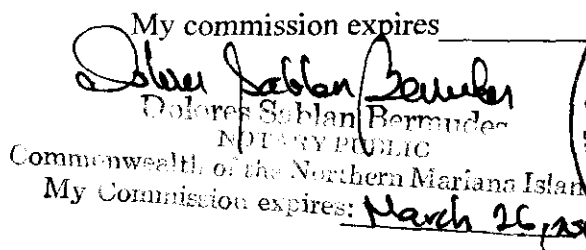 My commission expires
Dolores Sablan Bermudes
Dolores Sablan Bermudes
NOTARY PUBLIC
Commonwealth of the Northern Mariana Islan
My Commission expires: March 26,